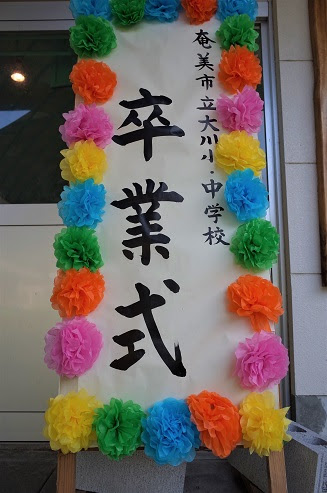 奄美市立大川小・中学校
卒業式